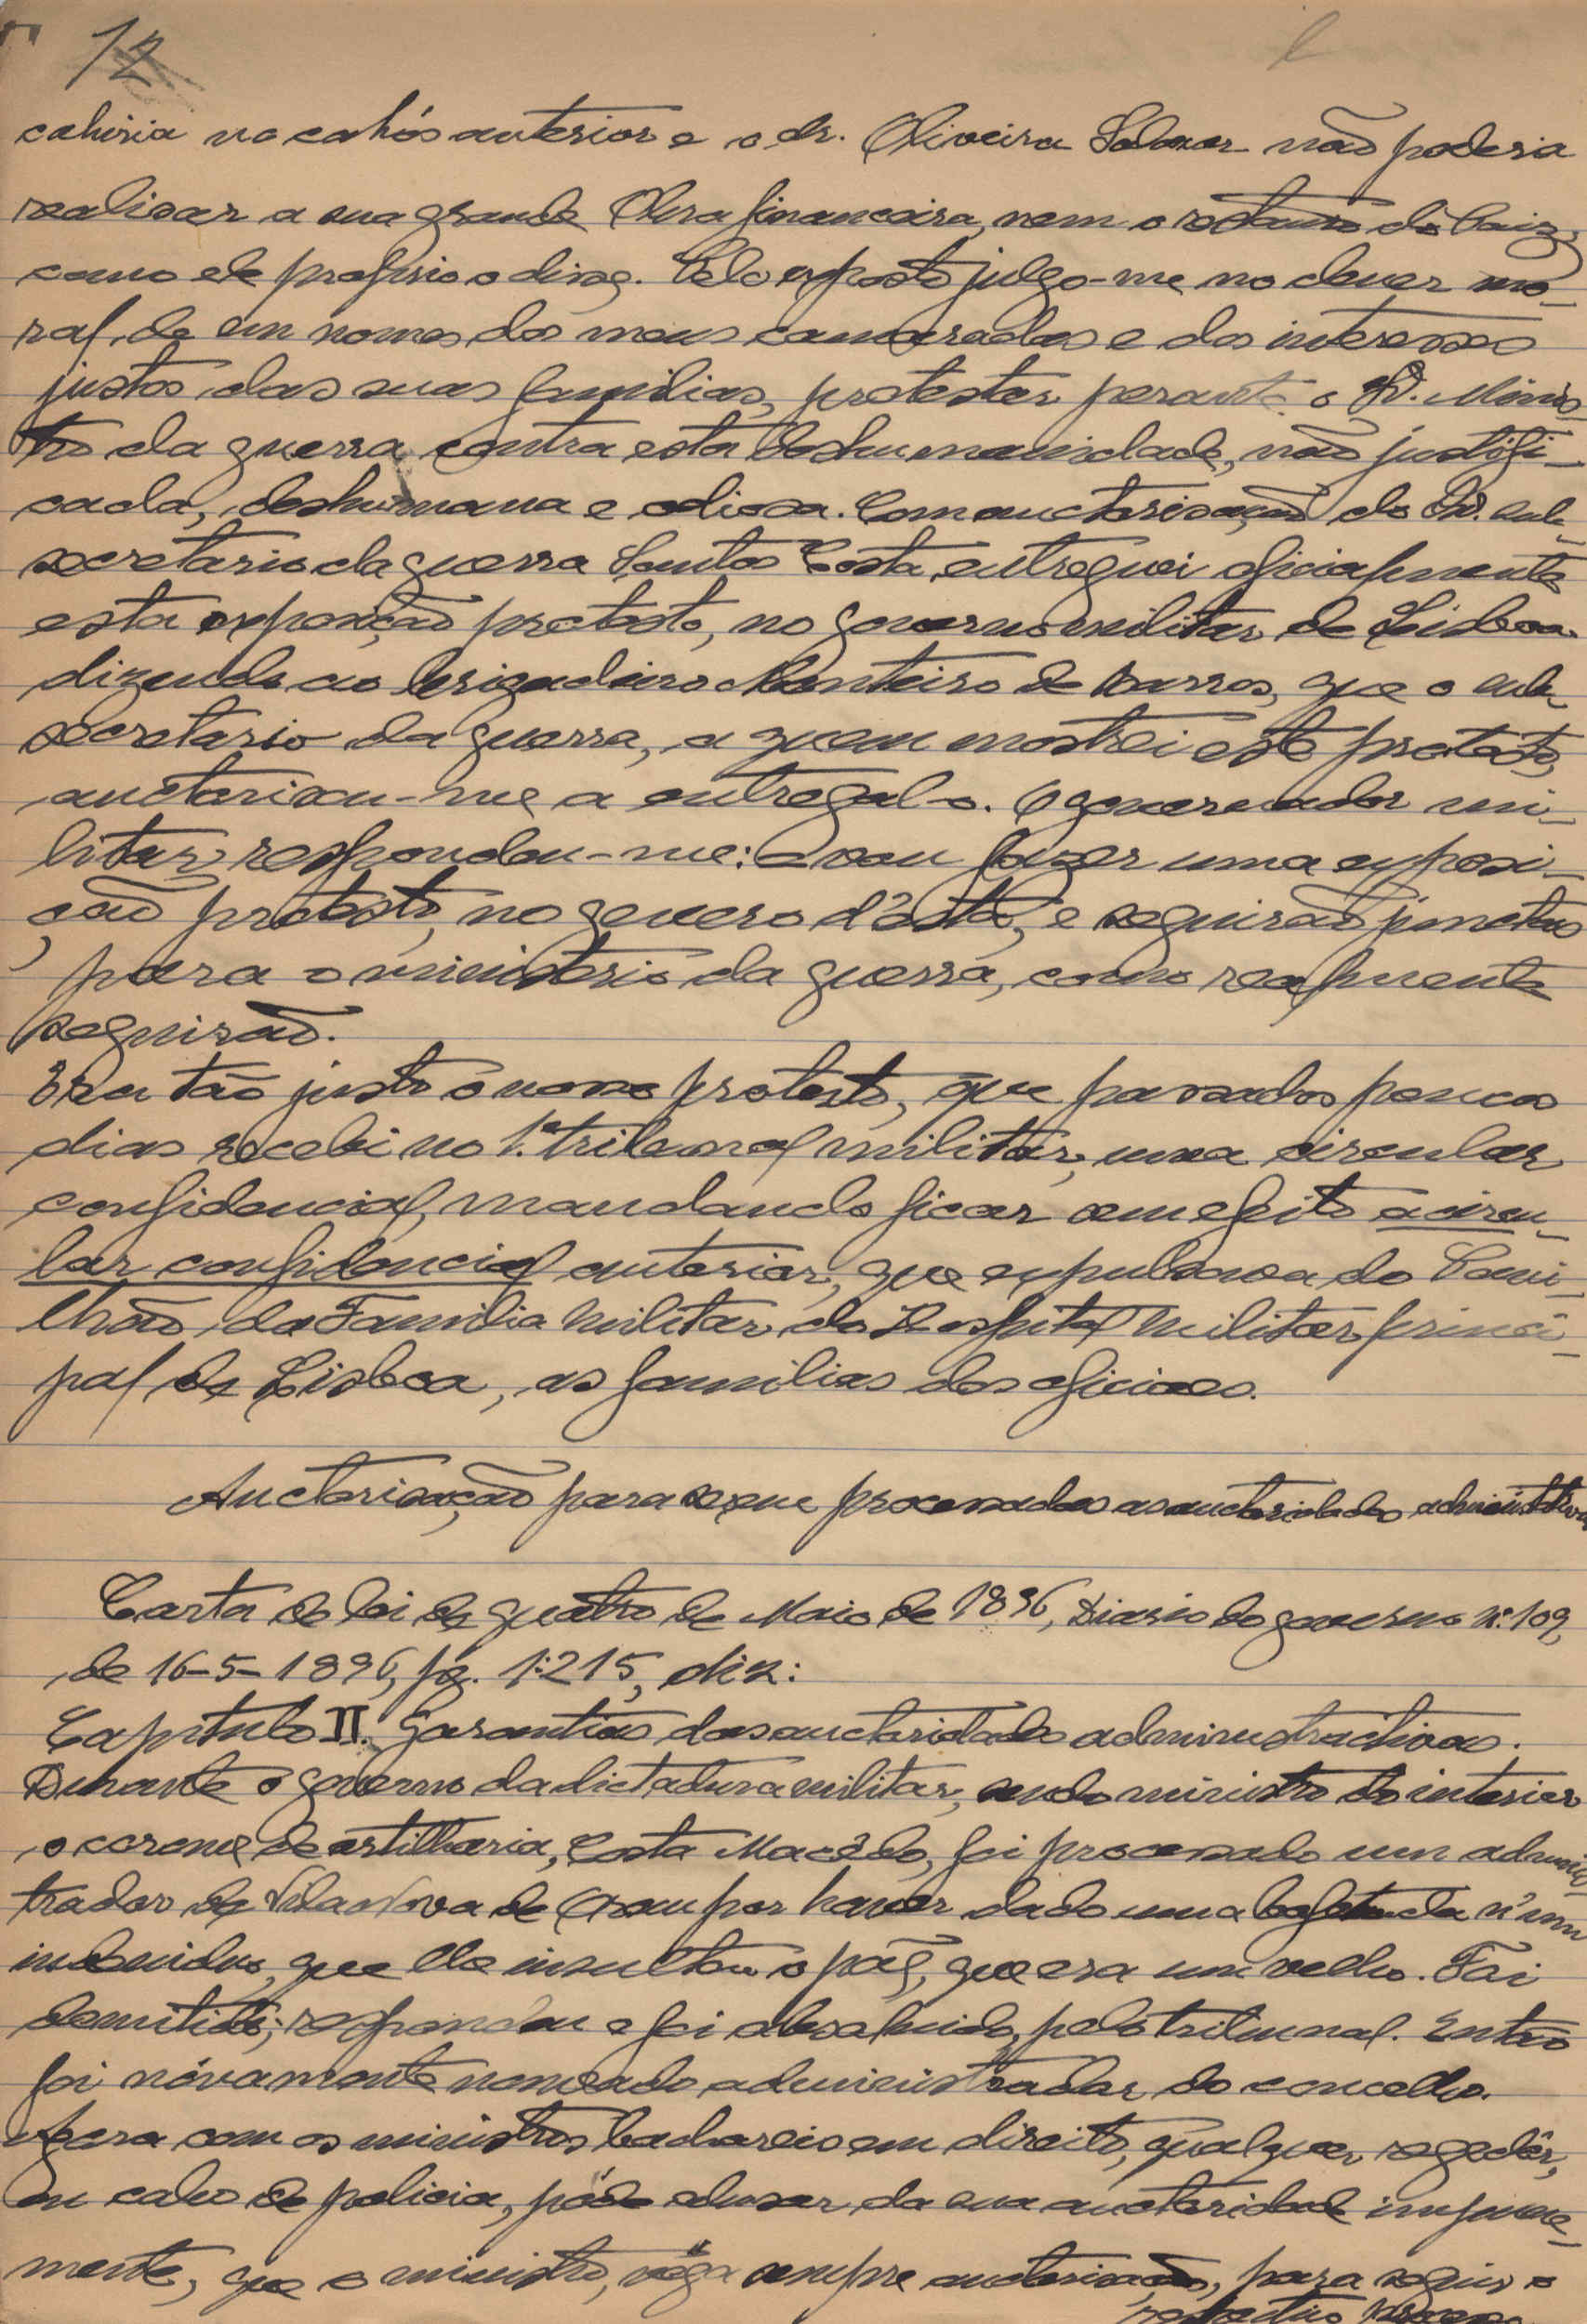 12
cahiria no cahós anterior e o dr. Oliveira Salazar não poderia
realisar a sua grande Obra financeira, nem o restauro do Paiz,
como ele proprio o disse. Pelo exposto julgo-me no dever mo-
ral, de em nome dos meus camaradas e dos interesses
justos das suas familias, protestar perante o Sr. Minis-
tro da guerra contra esta deshumanidade, não justifi-
cada, deshumana e odiosa. Com auctorisação do Sr. sub-
secretario da guerra Santos Costa, entreguei oficialmente
esta exposição protesto, no governo militar de Lisboa
dizendo ao brigadeiro Monteiro de Barros, que o sub-
secretario da guerra, a quem mostrei este protesto,
auctorisou-me a entregal-o. O governador mi-
litar, respondeu-me: vou fazer uma exposi-
ção protesto, no genero d'esta, e seguirão junctas
para o ministerio da guerra, como realmente
seguirão.
Era tão justo o nosso protesto, que passados poucos
dias recebi no 1.º tribunal militar, uma circular
confidencial, mandando ficar sem efeito a circu-
lar confidencial anterior, que expulsava do Pavi-
lhão da Familia Militar do Hospital Militar princi-
pal de Lisboa, as familias dos oficiaes.
Auctorisação para serem processados as auctoridades administrativas
Carta de lei de quatro de Maio de 1896, Diario do governo n.º 109,
de 16-5-1896, pg. 1:215, diz:
Capitulo II. Garantias das auctoridades administractivas.
Durante o governo da dictadura militar, sendo ministro do interior
o coronel de artilharia, Costa Macêdo, foi processado um adminis-
trador de Vila Nova de por haver dado uma bofetada n'um
individuo, que lhe insultou o pae, que era um velho. Foi
demitido; respondeu e foi absolvido, pelo tribunal. Então
foi nóvamente nomeado administrador do concelho.
Agora com os ministros bachareis em direito, qualquer regedôr,
ou cabo de policia, póde abusar da sua auctoridade impune-
mente, que o ministro, néga sempre auctorisação, para seguir o
respectivo processo